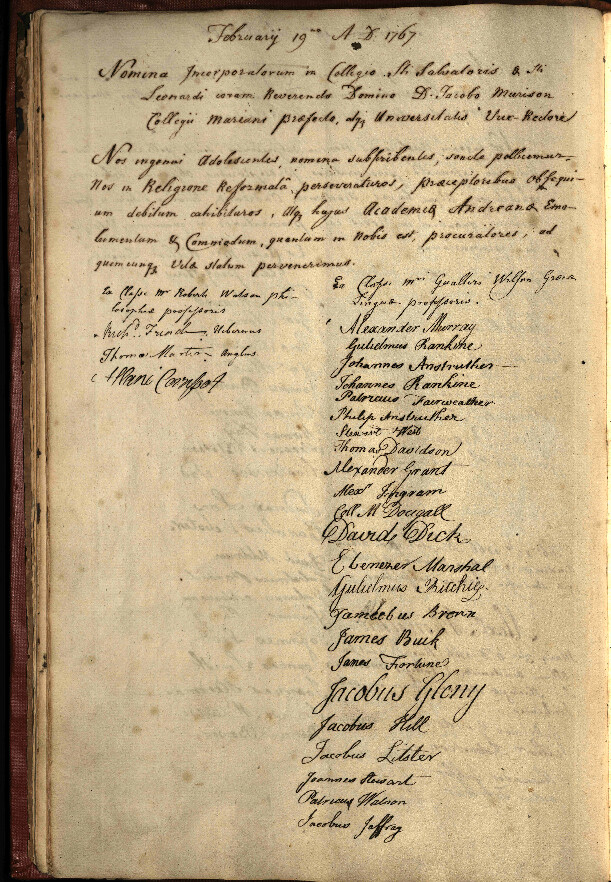 February 19no A. D. 1767
Nomina Incorporatorum in Collegio Sti Salvatoris & Sti
Leonardi coram Reverendo Domino D. Jacobo Murison
Collegii Mariani præfecto, atq Universitatis Vice-Rectore
Nos ingenui Adolescentes, nomina subscribentes, sancte pollicemur,
Nos in Religione Reformatâ perseveraturos, præceptoribus obsequi-
um debitum exhibituros, Atq hujus Academiæ Andreanæ Emo-
lumentum & Commodum, quantum in nobis est, procuratores, ad
quemcunq Vitæ statum pervenerimus.
Ex Classe Mri Roberti Watson phi-
losophiæ professoris
Archd. Hibernus
Thomas Martin Anglus
Ex Classe Mri Gualteri Wilson Græcæ
Linguæ professoris.
Alexander Murray
Gulielmus Rankine
Johannes Anstruther
Johannes Rankine
Patricius Fairweather
Philip Anstruther
Stewart
Thomas Davidson
Alexander Grant
Alexr Ingram
Coll McDougall
David Dick
Ebenezer Marshal
Gulielmus Ritchie
Brown
James Buik
James Fortune
Jacobus Gleny
Jacobus Hill
Jacobus Litster
Joannes Stewart
Patricius Watson
Jacobus Jaffray